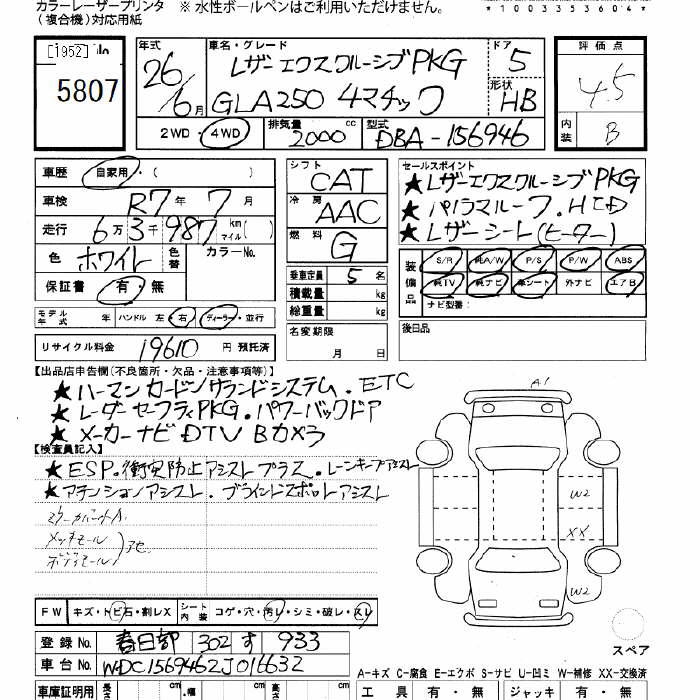 カラーレーザープリンタ ※ 水性ボールペンはご利用いただけません。
(複合機)対応用紙
*1003353604*
[1952] No
5807
年式 26年 6月
車名・グレード レザーエクスクルーシブPKG
GLA250 4マチック
ドア 5
形状 HB
2WD・4WD
排気量 2000 cc
型式 DBA-156946
評価点 4.5
内装 B
車歴 自家用・( )
車検 R7年 7月
走行 6万3千987 km(マイル)( )
色 ホワイト 色替 カラーNo.
保証書 有・無
モデル年式 年 ハンドル 左・右 ディーラー・並行
リサイクル料金 19610 円 預託済
シフト CAT
冷房 AAC
燃料 G
乗車定員 5 名
積載量 kg
総重量 kg
名変期限 月 日
セールスポイント
★レザーエクスクルーシブPKG
★パノラマルーフ.HID
★レザーシート(ヒーター)
装備品 S/R 純A/W P/S P/W ABS
純TV 純ナビ 革シート 外ナビ エアB
ナビ型番:
後日品
【出品店申告欄(不良箇所・欠品・注意事項等)】
★ハーマンカードンサラウンドシステム.ETC
★レーダーセーフティPKG.パワーバックドア
★メーカーナビ DTV Bカメラ
【検査員記入】
★ESP.衝突防止アシストプラス.レーンキープアシスト
★アテンションアシスト.ブラインドスポットアシスト
メッキモール
A1
W2
XX
W2
スペア
FW キズ・トビ石・割レX シート内装 コゲ・穴・汚レ・シミ・破レ・スレ
登録No. 春日部 302 す 933
車台No. WDC1569462J016632
A-キズ C-腐食 E-エクボ S-サビ U-凹ミ W-補修 XX-交換済
車庫証明用 長さ cm ・幅 cm 高さ cm
工具 有・無 ジャッキ 有・無